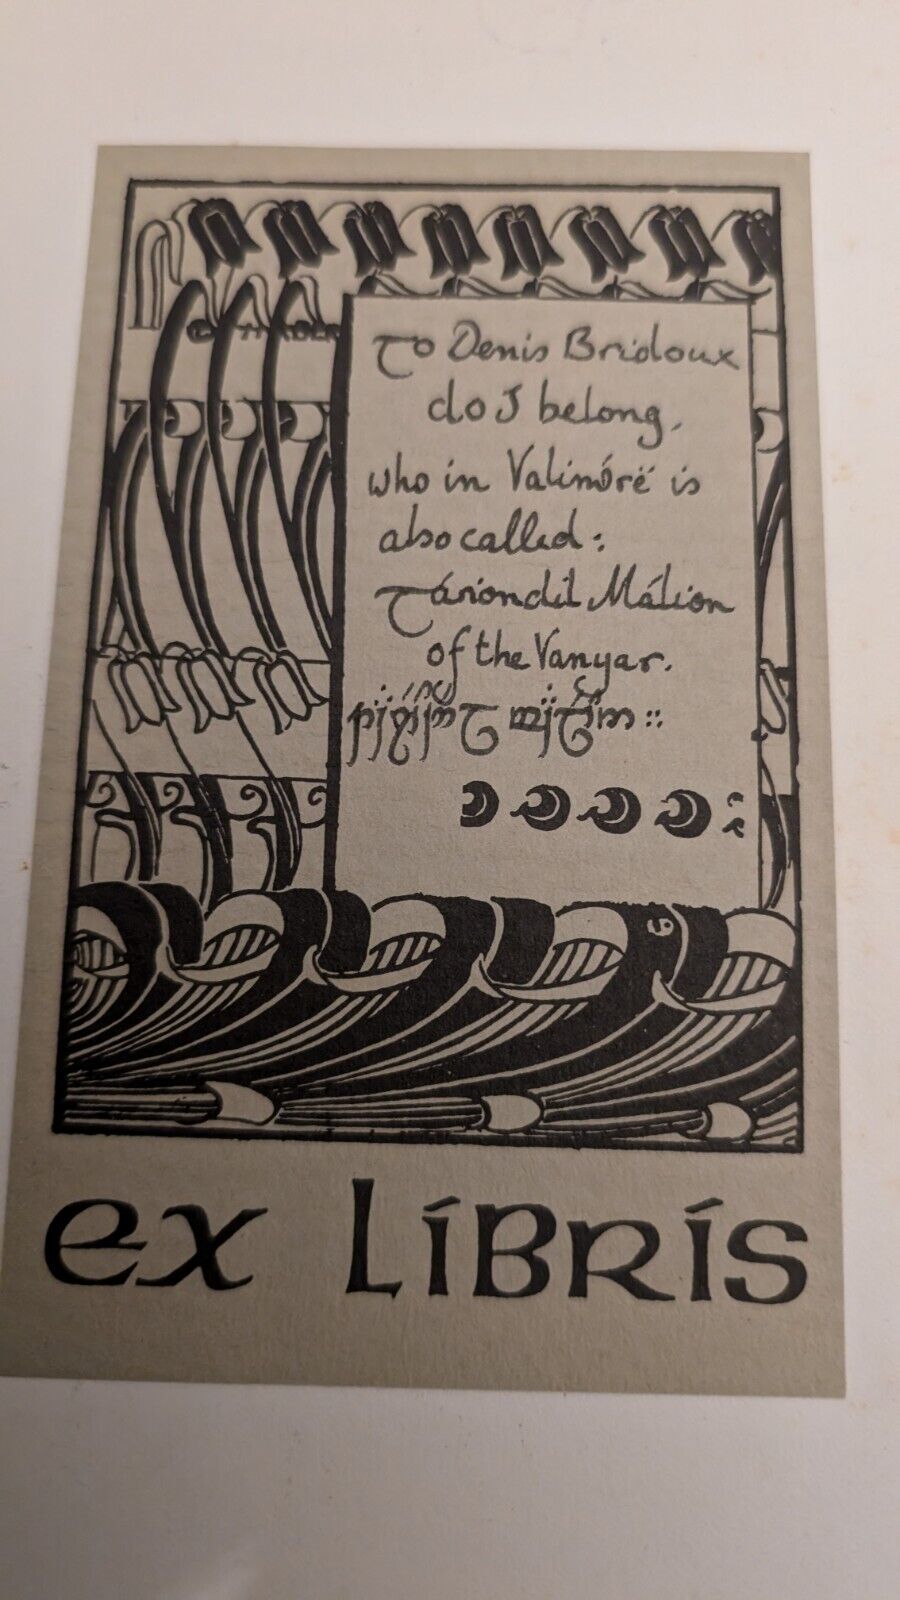 To Denis Bridoux
do I belong,
who in Valimórë is
also called:
Táriondil Málion
of the Vanyar.
ex LíBRíS